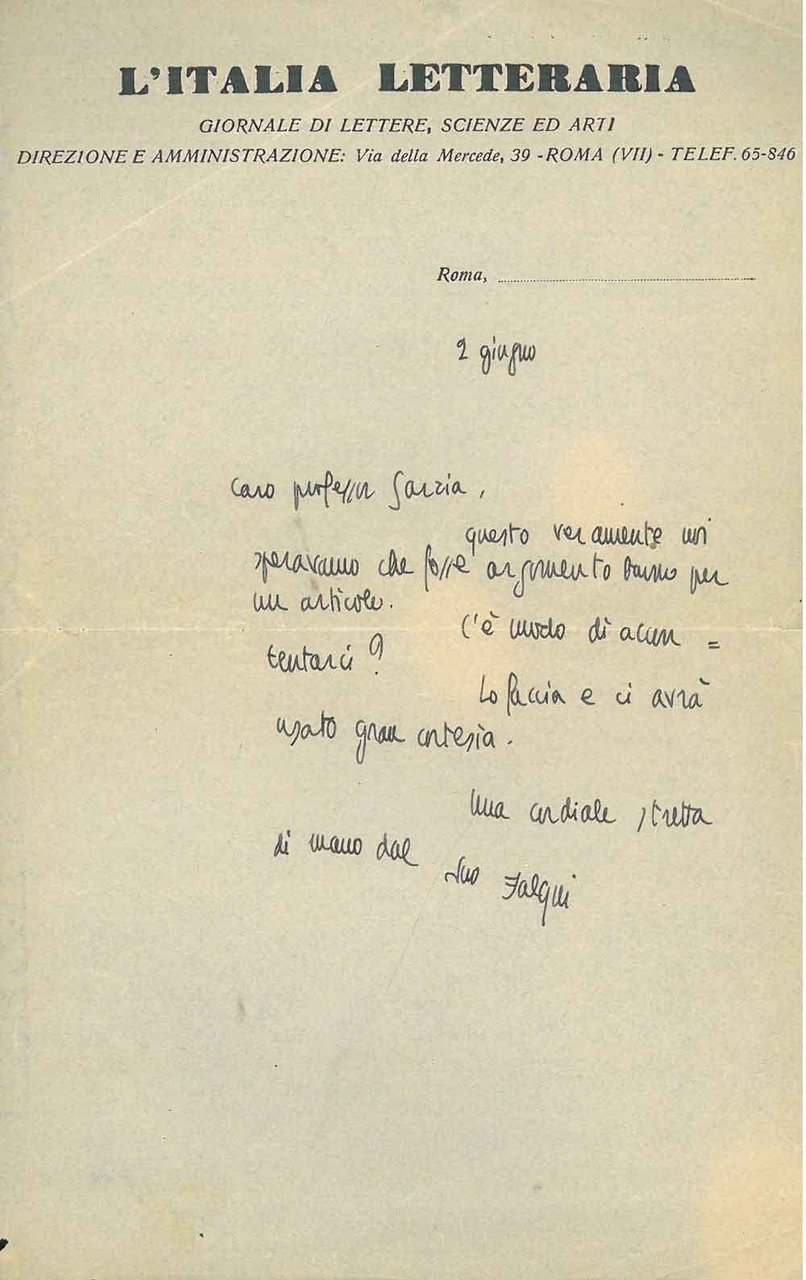 L'ITALIA LETTERARIA
GIORNALE DI LETTERE, SCIENZE ED ARTI
DIREZIONE E AMMINISTRAZIONE: Via della Mercede, 39 - ROMA (VII) - TELEF. 65-846
Roma,
2 giugno
Caro professor Garzia,
questo veramente noi
speravamo che fosse argomento buono per
un articolo.
C'è modo di accon =
tentarci?
Lo faccia e ci avrà
usato gran cortesia.
Una cordiale stretta
di mano dal suo Falqui